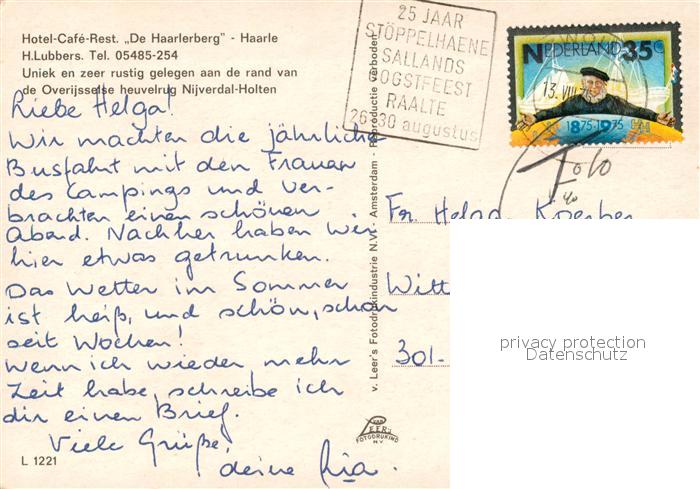 Hotel-Café-Rest. „De Haarlerberg" - Haarle
H.Lubbers. Tel. 05485-254
Uniek en zeer rustig gelegen aan de rand van
de Overijsselse heuvelrug Nijverdal-Holten
Liebe Helga!
Wir machten die jährliche
Busfahrt mit den Frauen
des Campings und ver-
brachten einen schönen
Abend. Nachher haben wir
hier etwas getrunken.
Das Wetter im Sommer
ist heiß, und schön, schon
seit Wochen!
Wenn ich wieder mehr
Zeit habe, schreibe ich
dir einen Brief.
Viele Grüße,
deine Ria.
L 1221
v. Leer's Fotodrukindustrie N.V. - Amsterdam - Reproductie verboden
VAN
LEER'S
FOTODRUKIND
N.V.
25 JAAR
STÖPPELHAENE
SALLANDS
OOGSTFEEST
RAALTE
26-30 augustus
NEDERLAND 35c
13. VIII
1875-1975
T
Fr. Helga Koerber
Witt
301-
privacy protection
Datenschutz